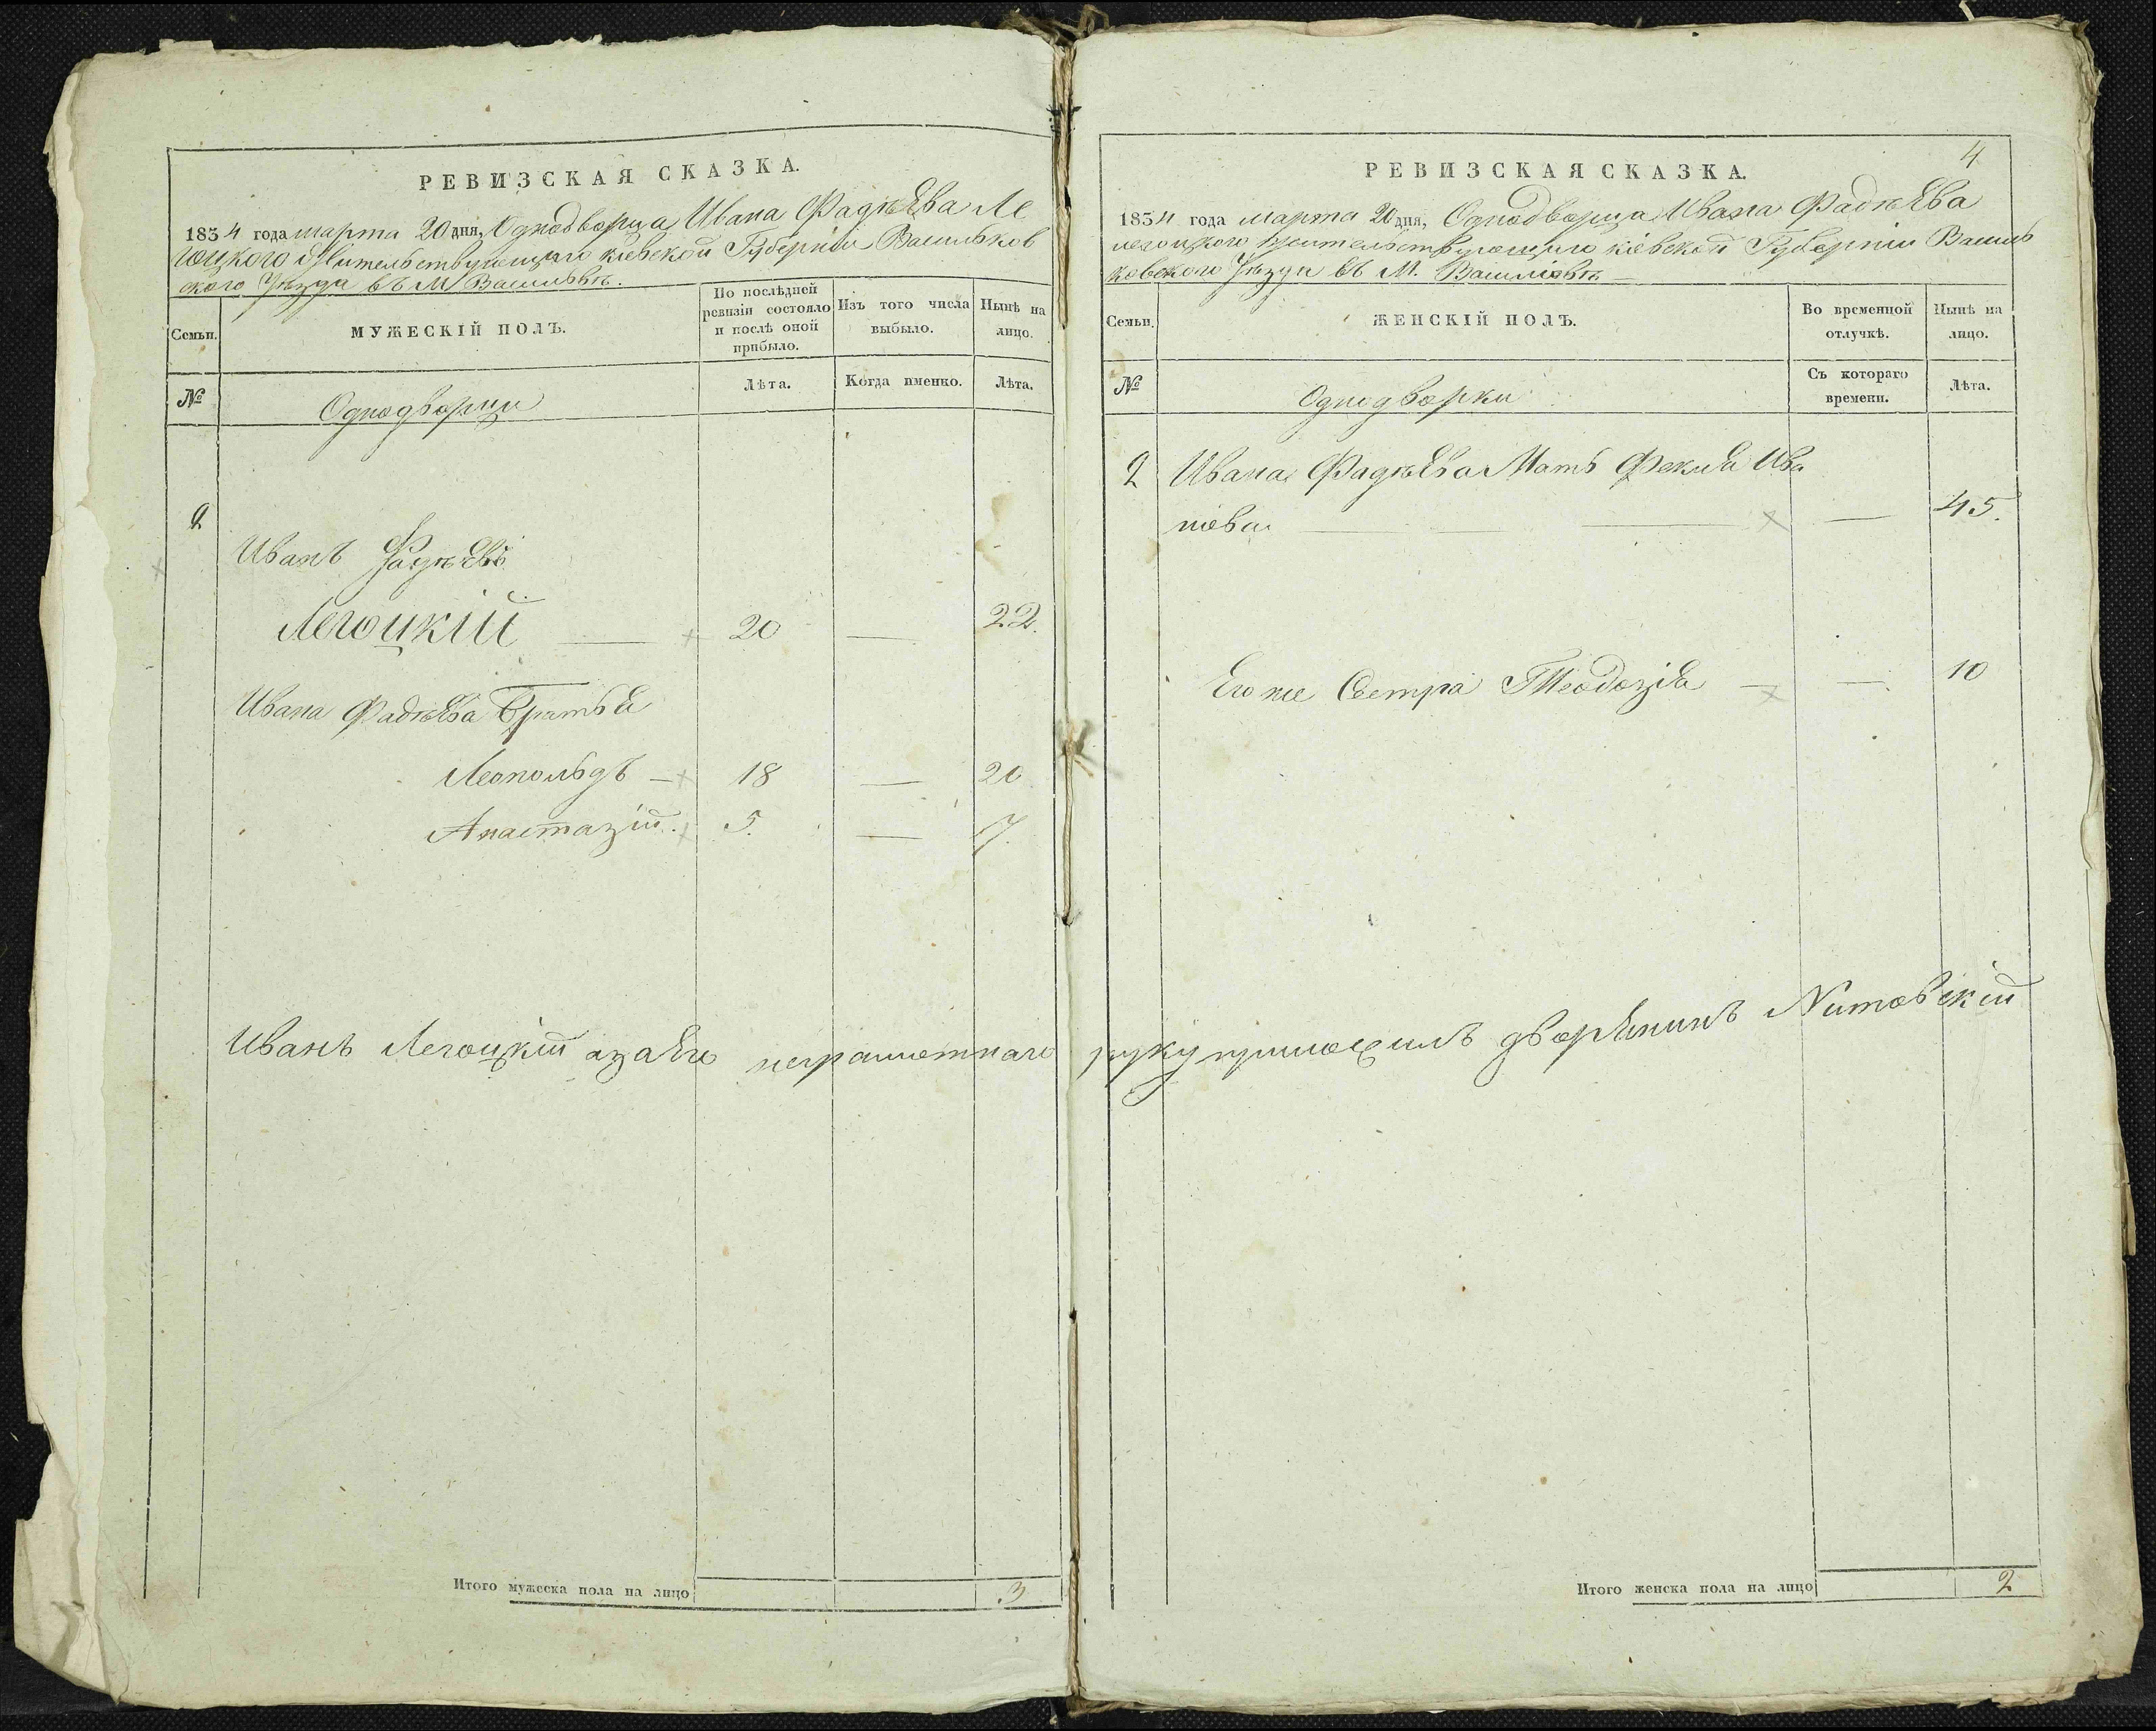 РЕВИЗСКАЯ СКАЗКА.
1834 года марта 20 дня, Однодворца Ивана Фадѣева Ле
гоцкого Жительствующаго кіевской Губерніи Васильков
ского Уѣзда въ М
Семьи.
МУЖЕСКІЙ ПОЛЪ.
По послѣдней ревизіи состояло и послѣ оной прибыло.
Изъ того числа выбыло.
Нынѣ на лицо.
№
Однодворци
Лѣта.
Когда именно.
Лѣта.
2
Иванъ Фадѣевъ
Легоцкій — 20 — 22.
Ивана Фадѣева Братья
Леопольдъ — 18 — 20
Анастазій. 5. — 7.
Иванъ Легоцкій а за его неграмотнаго
Итого мужеска пола на лицо 3
4
РЕВИЗСКАЯ СКАЗКА.
1834 года марта 20 дня, Однодворца Ивана Фадѣева
легоцкого жительствующаго кіевской Губерніи Василь
ковского Уѣзда въ М.
Семьи.
ЖЕНСКІЙ ПОЛЪ.
Во временной отлучкѣ.
Нынѣ на лицо.
№
Однодворки
Съ котораго времени.
Лѣта.
2 Ивана Фадѣева Мать Фекля Ива
нова — — 45.
Его же Сестра Теодозія — — 10
руку приложилъ дворянинъ
Итого женска пола на лицо 2